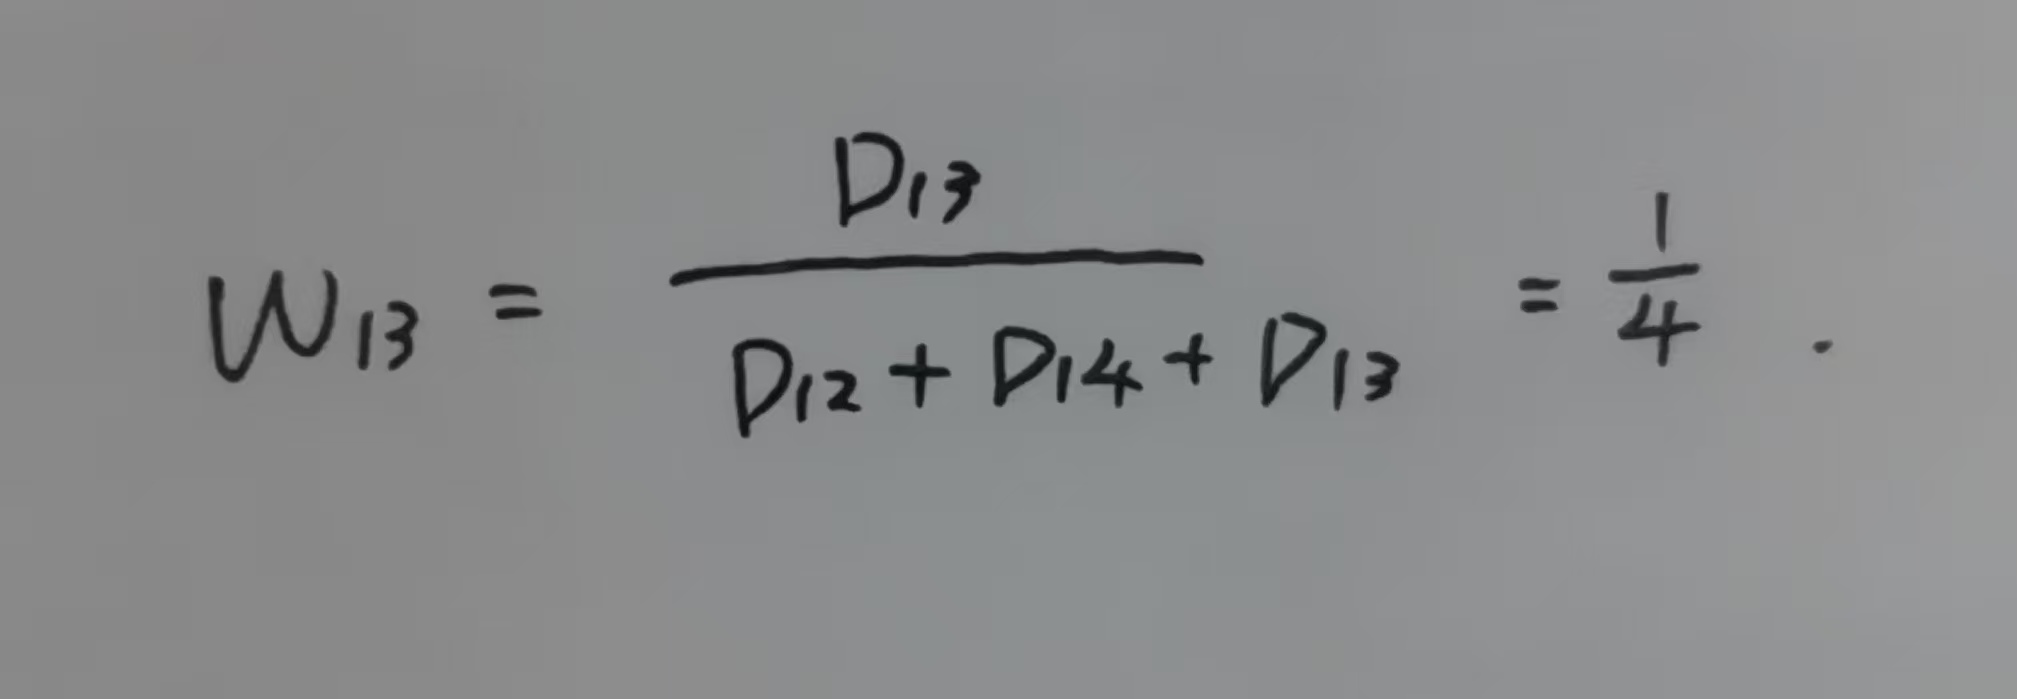 W₁₃ = D₁₃ / (D₁₂ + D₁₄ + D₁₃) = 1/4 .